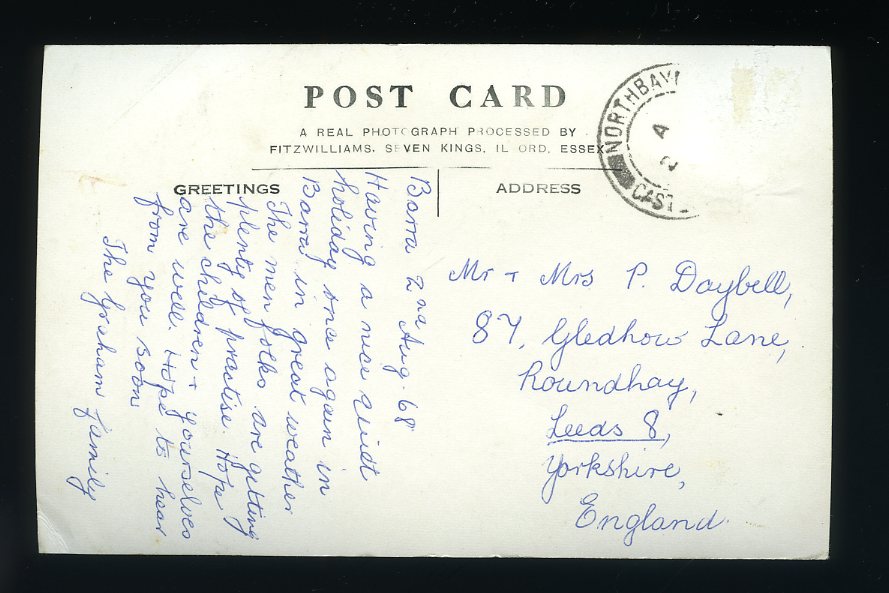 POST CARD
A REAL PHOTOGRAPH PROCESSED BY
FITZWILLIAMS. SEVEN KINGS, IL ORD, ESSEX
NORTHBAY
4
2
CAST
GREETINGS
ADDRESS
Barra 2nd Aug. 68
Having a nice quiet
holiday once again in
Barra in great weather
The men folks are getting
plenty of practise. Hope
the children + yourselves
are well. Hope to hear
from you soon
The Graham family
Mr + Mrs P. Daybell,
87, Gledhow Lane,
Roundhay,
Leeds 8,
Yorkshire,
England.